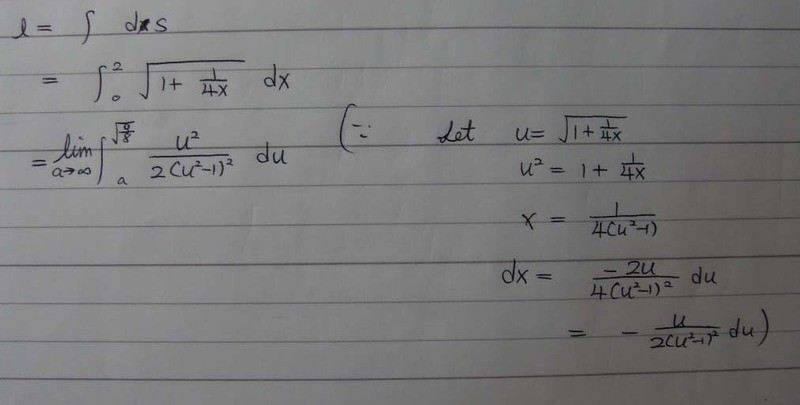 l = ∫ ds
= ∫₀² √(1 + 1/4x) dx
= lim a→∞ ∫ₐ^√(9/8) u²/2(u²-1)² du (∵ Let u = √(1 + 1/4x)
u² = 1 + 1/4x
x = 1/4(u²-1)
dx = -2u/4(u²-1)² du
= - u/2(u²-1)² du)